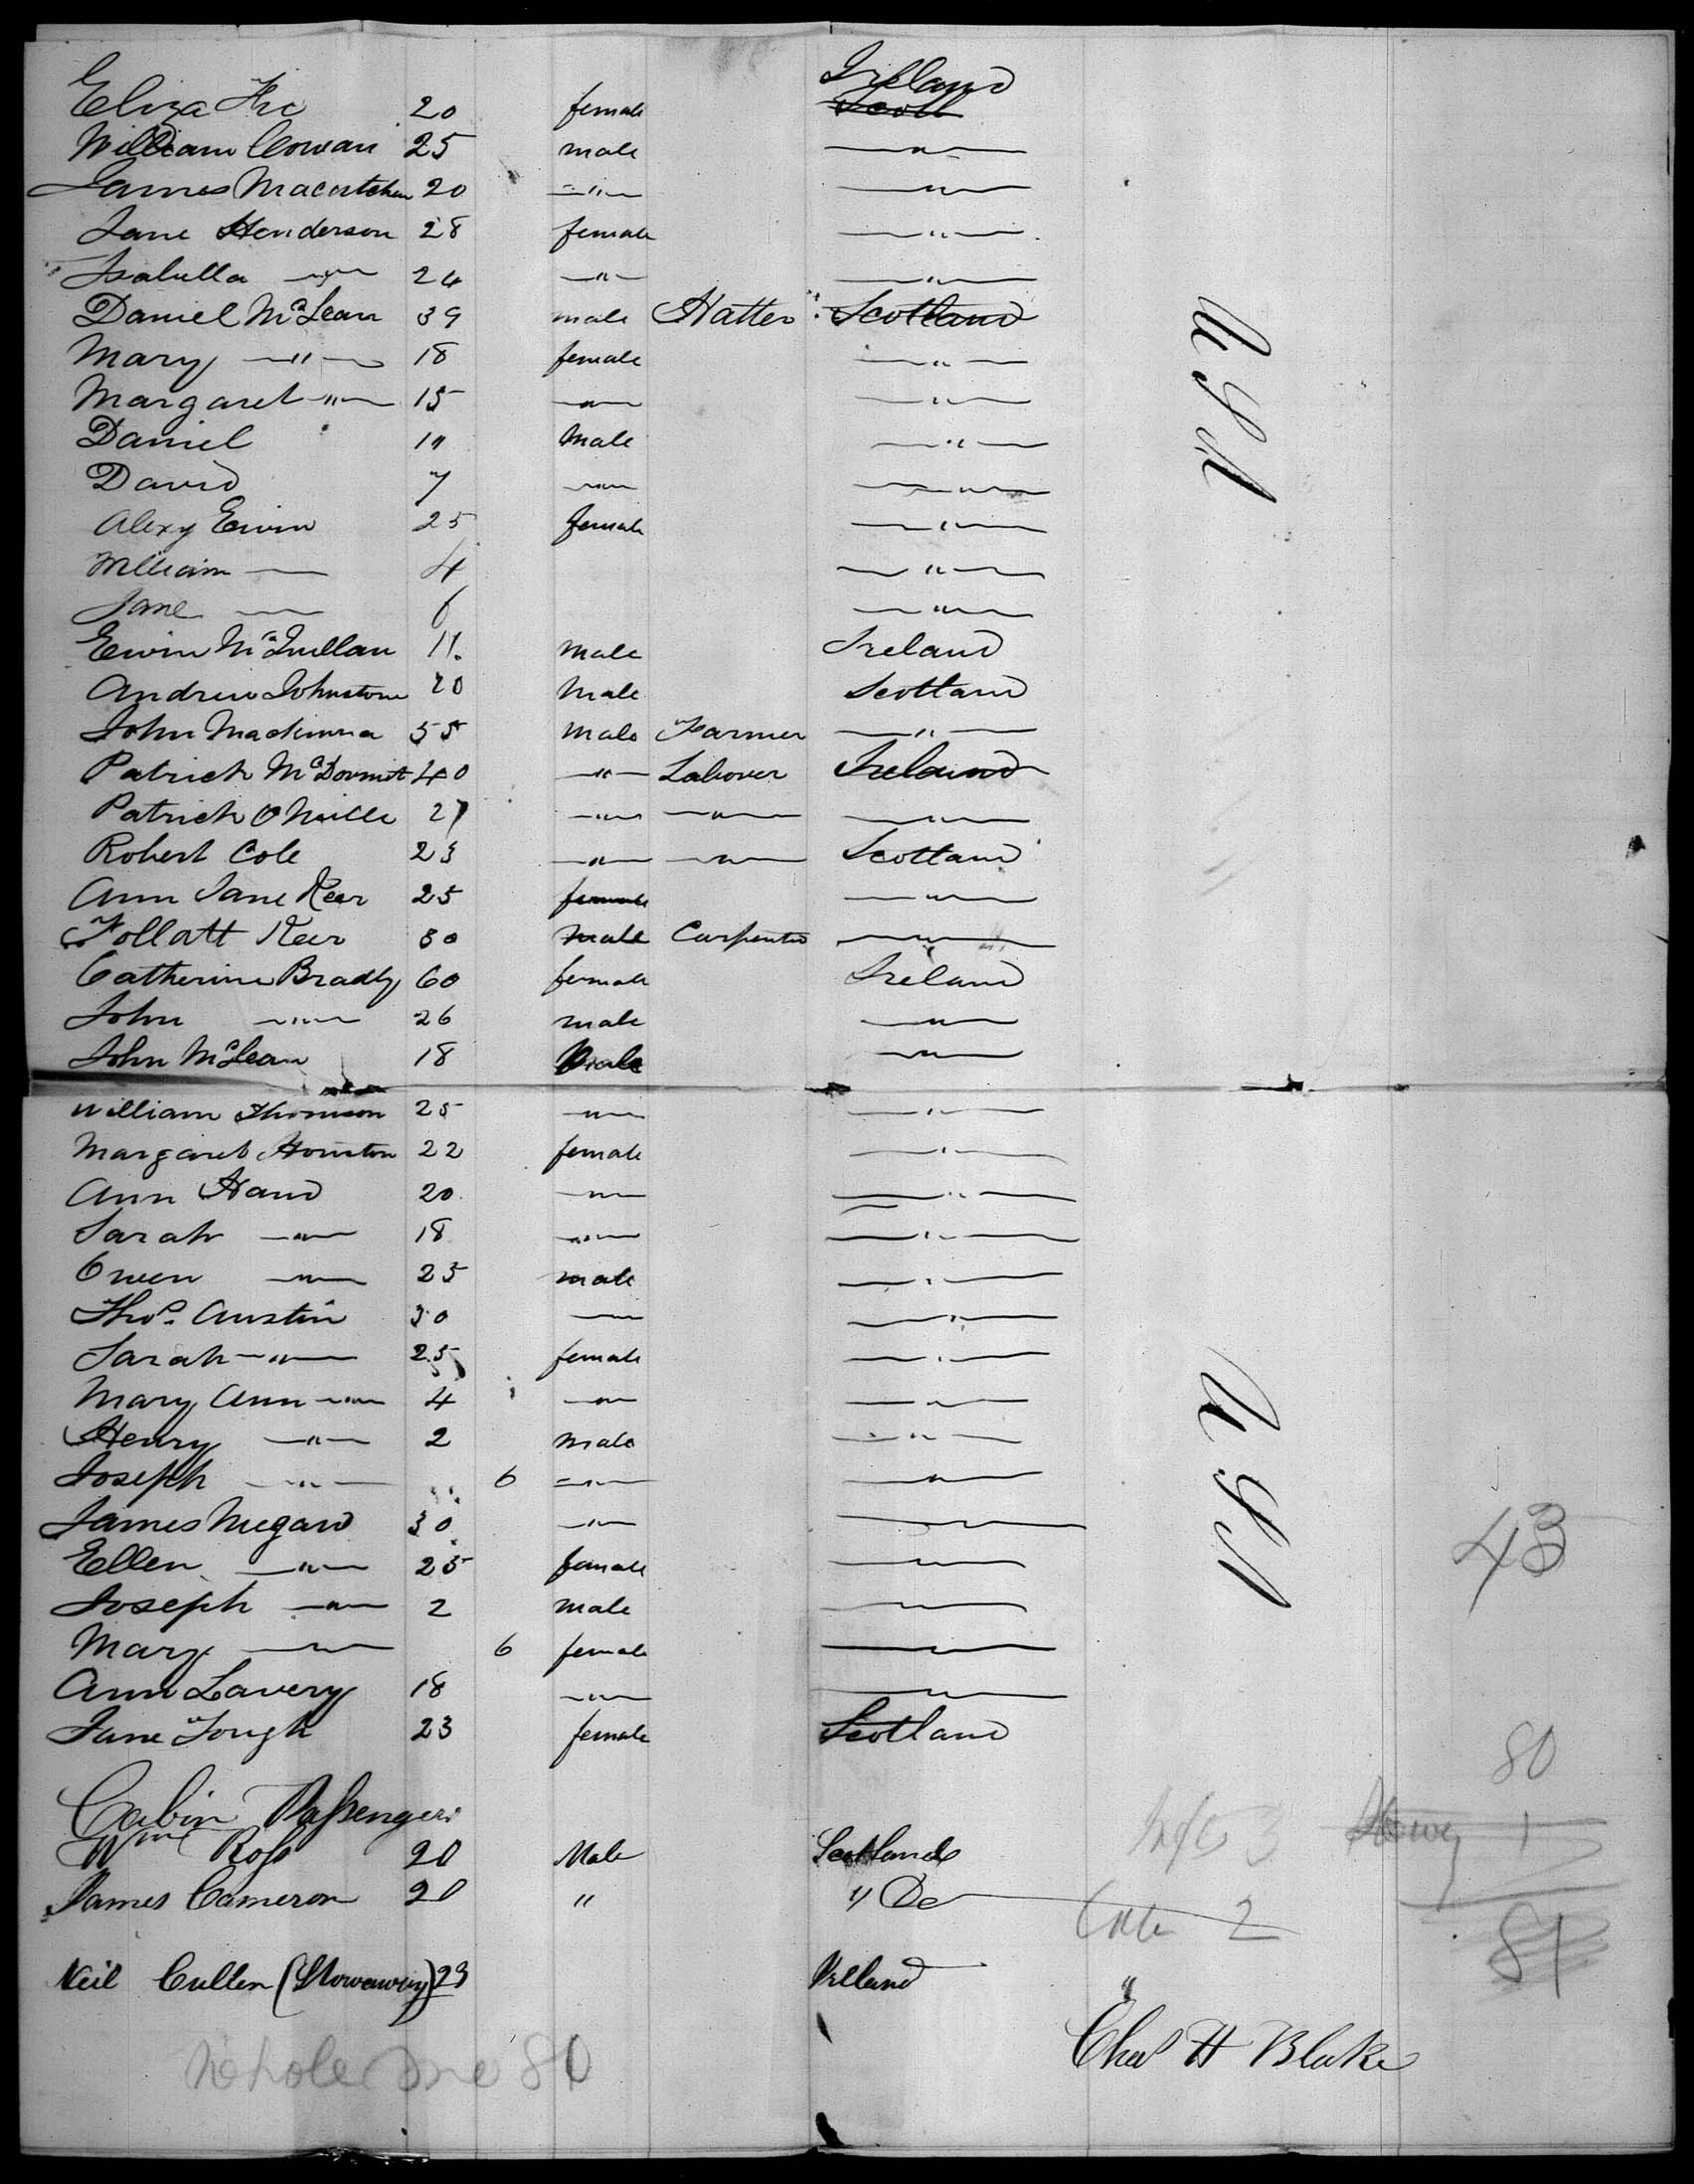 Ireland
Eliza 20 female Scotl
William Cowan 25 male —"—
James Macutchen 20 —"— —"—
Jane Henderson 28 female —"—
Isabella —"— 24 —"— —"—
Daniel McLean 39 male Hatter Scotland
Mary —"— 18 female —"—
Margaret —"— 15 —"— —"—
Daniel 11 Male —"—
David 7 —"— —"—
Alexy Erwin 25 female —"—
William — 4 —"—
Jane — 6 —"—
Erwin McQuillan 11. male Ireland
Andrew Johnstone 20 Male Scotland
John Mackinna 55 Male Farmer —"—
Patrick McDormit 40 —"— Labourer Ireland
Patrick O Neille 27 —"— —"— —"—
Robert Cole 23 —"— —"— Scotland
Ann Jane Keer 25 female —"—
Follatt Keer 30 Male Carpenter —"—
Catherine Bradly 60 female Ireland
John —"— 26 male —"—
John McLean 18 Male —"—
William Thomson 25 —"— —"—
Margaret Houston 22 female —"—
Ann Hand 20 —"— —"—
Sarah —"— 18 —"— —"—
Owen —"— 25 male —"—
Thos. Austin 30 —"— —"—
Sarah —"— 25 female —"—
Mary Ann —"— 4 —"— —"—
Henry —"— 2 male —"—
Joseph —"— 6 —"— —"—
James Megard 30 —"— —"—
Ellen —"— 25 female —"—
Joseph —"— 2 male —"—
Mary —"— 6 female —"—
Ann Lavery 18 —"— —"—
Jane Tough 23 female Scotland
U S A
U S A
43
80
Cabin Passengers
Wm Ross 20 Male Scotland
Infts 3 Stowy 1
James Cameron 20 " " Do
Cab 2
81
Neil Cullen (Stowaway) 23 Irelland "
Chas H Blake
whole one 81